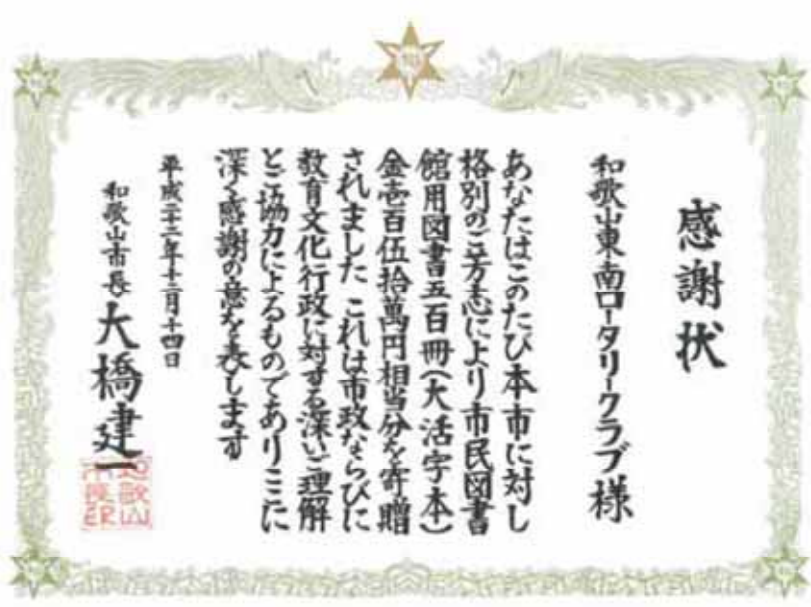 感謝状
和歌山東南ロータリークラブ様
あなたはこのたび本市に対し
格別のご芳志により市民図書
館用図書五百冊(大活字本)
金壱百伍拾萬円相当分を寄贈
されました これは市政ならびに
教育文化行政に対する深いご理解
とご協力によるものでありここに
深く感謝の意を表します
平成二十二年十二月十四日
和歌山市長 大橋建一
和歌山市長印